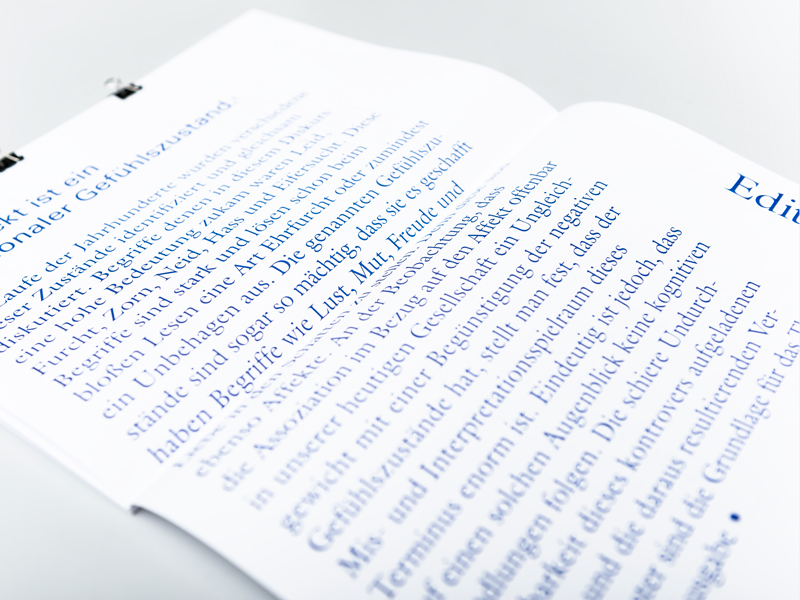 ekt ist ein
onaler Gefühlszustand.
Laufe der Jahrhunderte wurden verschiedene
eser Zustände identifiziert und gleichsam
diskutiert. Begriffe denen in diesem Diskurs
eine hohe Bedeutung zukam waren Leid,
Furcht, Zorn, Neid, Hass und Eifersucht. Diese
Begriffe sind stark und lösen schon beim
bloßen Lesen eine Art Ehrfurcht oder zumindest
ein Unbehagen aus. Die genannten Gefühlszu-
stände sind sogar so mächtig, dass sie es geschafft
haben Begriffe wie Lust, Mut, Freude und
ebenso Affekte. An der Beobachtung, dass
die Assoziation im Bezug auf den Affekt offenbar
in unserer heutigen Gesellschaft ein Ungleich-
gewicht mit einer Begünstigung der negativen
Gefühlszustände hat, stellt man fest, dass der
Mis- und Interpretationsspielraum dieses
Terminus enorm ist. Eindeutig ist jedoch, dass
f einen solchen Augenblick keine kognitiven
dlungen folgen. Die schiere Undurch-
barkeit dieses kontrovers aufgeladenen
und die daraus resultierenden Ver-
ter sind die Grundlage für das Th
usgabe
Edit